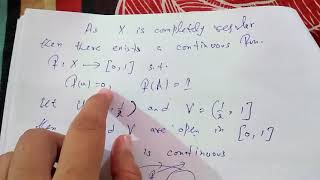 As X is completely regular
then there exists a continuous fun.
φ: X → [0, 1] s.t.
φ(a) = 0, φ(b) = 1
1/2) and V = (1/2, 1]
V are open in [0, 1]
is continuous